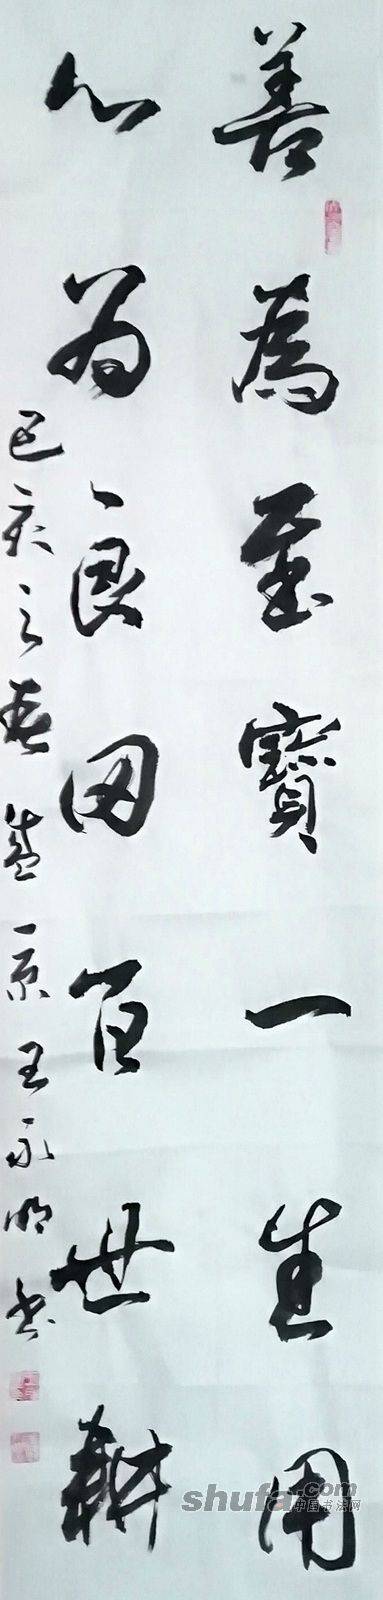 善為至寶一生用
心為良田百世耕
己亥之春 燕京王永明书
shufa.com
中国书法网